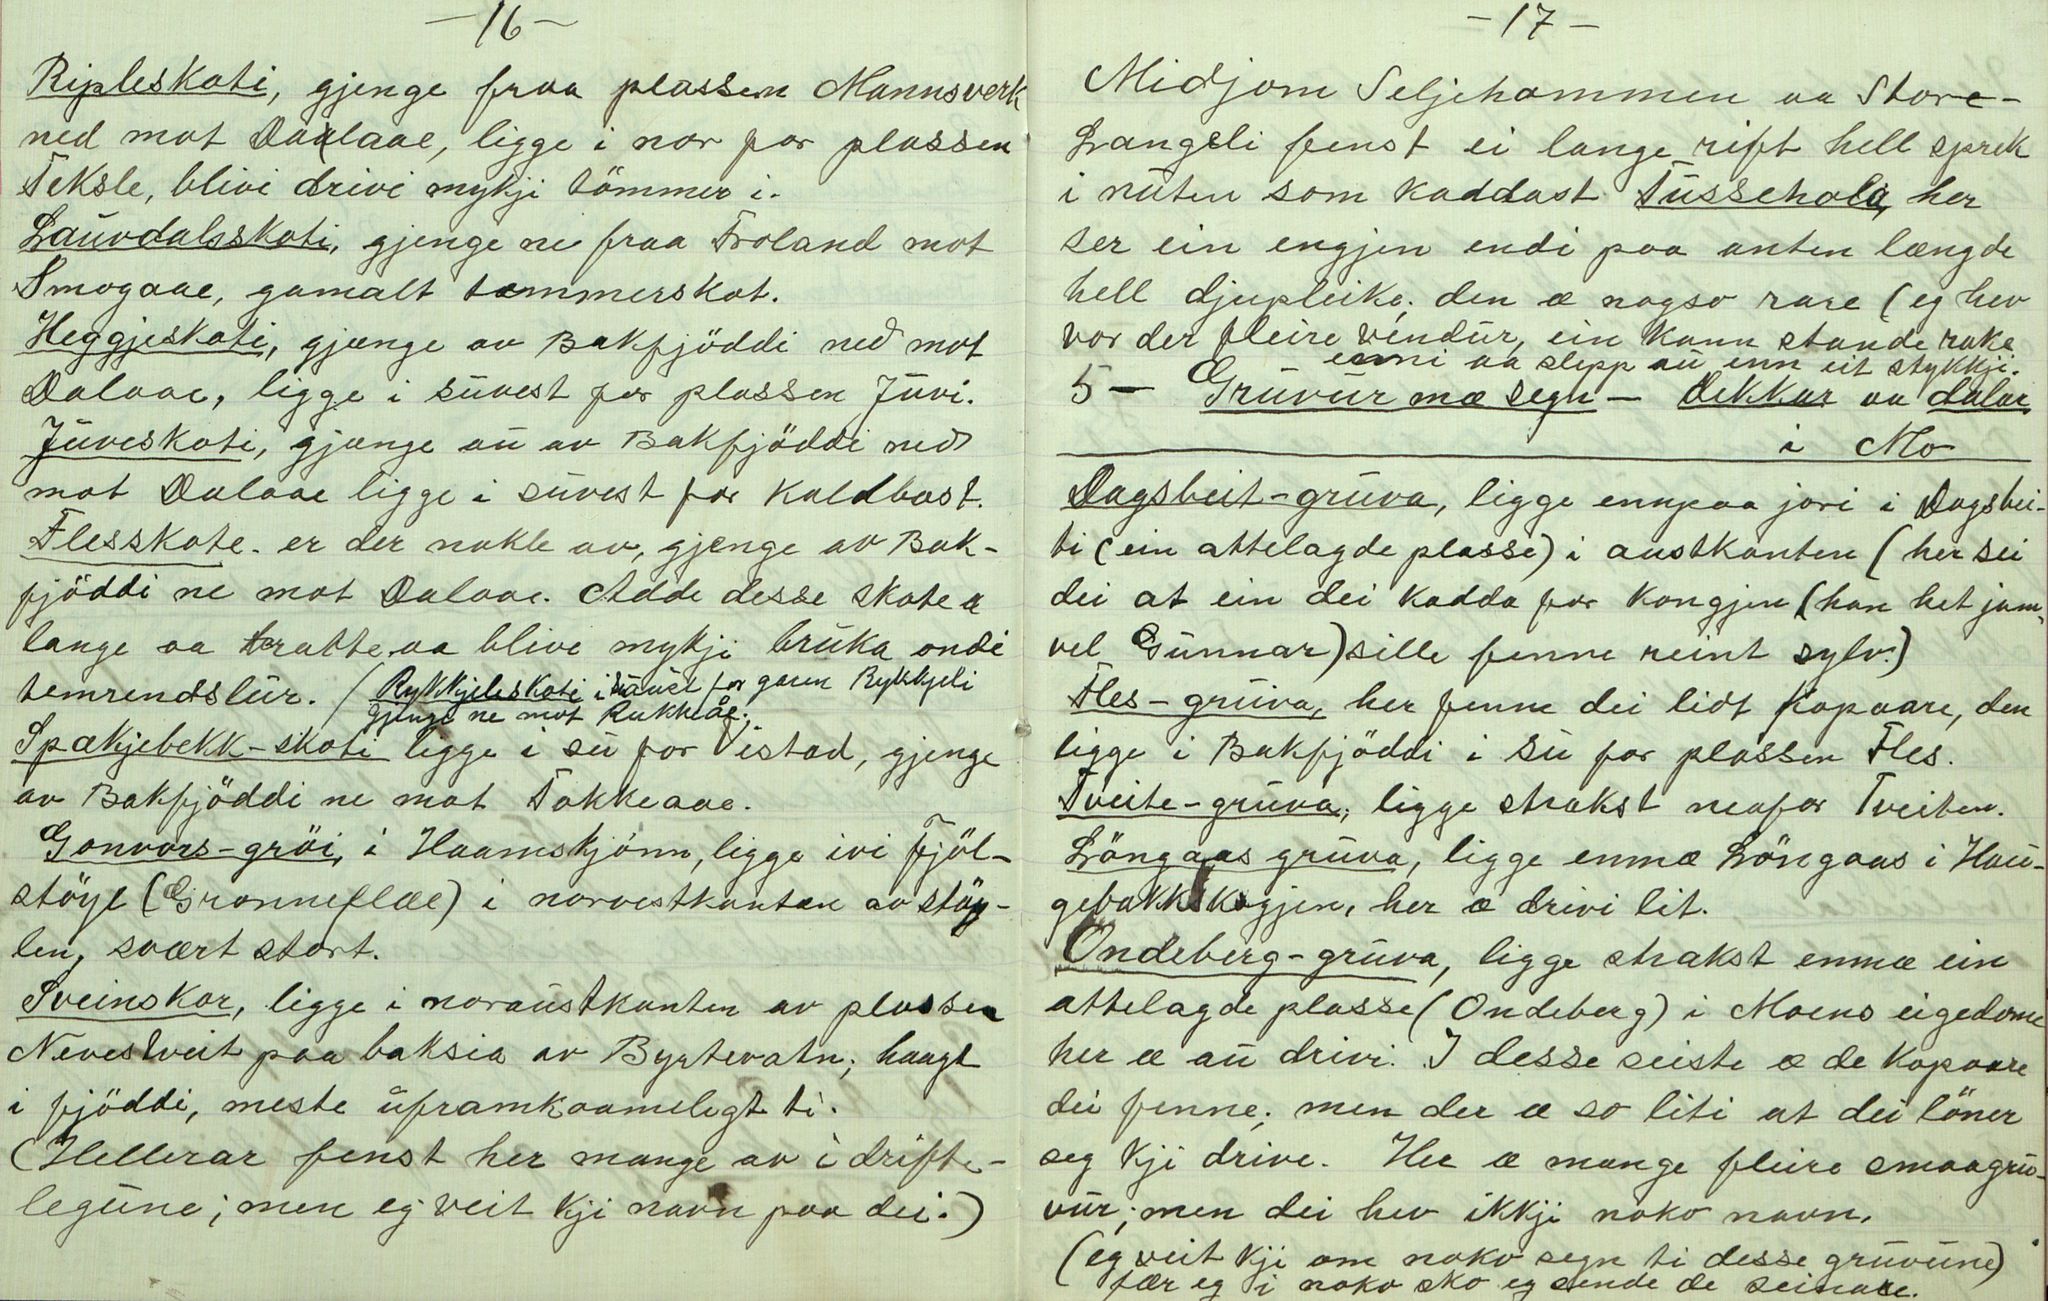 -16-
Ripleskoti, gjenge fraa plassen Mannsverk
ned mot Daalaae, ligge i nor for plassen
Teksle, blivi drivi mykji tömmer i.
Lauvdalsskoti, gjenge ne fraa Froland mot
Smogaae, gamalt tømmerskot.
Heggjeskoti, gjænge av Bakfjöddi ned mot
Dalaae, ligge i süvest for plassen Jüvi.
Jüveskoti, gjænge aü av Bakfjöddi ned
mot Dalaae ligge i süvest for Kaldbast.
Flesskote. er der nokle av, gjenge av Bak-
fjöddi ne mot Dalaae. Adde desse skote æ
lange aa bratte aa blive mykji brüka ondi
temrendslür. / Rykkjeleskoti i süaust for garen Rykkjeli
gjenge ne mot Rukkeåe.
Spækjebekk-skoti ligge i sü for Vistad, gjenge
av Bakfjöddi ne mot Tokkeaae.
Gonvors-gröi, i Haamskjönn, ligge ivi Fjöl-
støyl (Grønneflæe) i norvestkanten av støy-
len, svært stort.
Sveinskor, ligge i noraüstkanten av plassen
Nevestveit paa baksia av Byrtevatn; haagt
i fjöddi, meste üframkaamelegt ti.
(Hellerar fenst her mange av i drifte-
legüne; men eg veit kji navn paa dei.)
-17-
Midjom Seljehammen aa Store-
Langsli fenst ei lange rift hell sprek
i nüten som kaddast Tüssehola, her
ser ein engjen endi paa anten længde
hell djupleike; den æ nogso rare (eg hev
vor der fleire vendür, ein kann stande rake
enni aa slepp aü enn eit stykkji.
5- Grüvür mæ segn - dekkar aa dalar
i Mo
Dagsbeit-grüva, ligge ennpaa jori i Dagsbei-
ti (ein attelagde plasse) i austkanten (her sei
dei at ein dei kadda for Kongjen (han het jam-
vel Günnar) sille fenne reint sylv.)
Fles-grüva, her fenne dei lidt kopaare, den
ligge i Bakfjöddi i sü for plassen Fles.
Tveite-grüva, ligge strakst neafor Tveiten.
Löngaas grüva, ligge enmæ Löngaas i Haü-
gebakkskogjen, her æ drivi lit.
Ondeberg-grüva, ligge strakst enmæ ein
attelagde plasse (Ondeberg) i Moens eigedome
her æ aü drivi. I desse seiste æ de kopaare
dei fenne; men der æ so liti at dei löner
seg kji drive. Her æ mange fleire smaagrü-
vür; men dei hev ikkji noko navn.
(eg veit kji om noko segn ti desse grüvüne)
fær eg i noko sko eg sende de seinare.